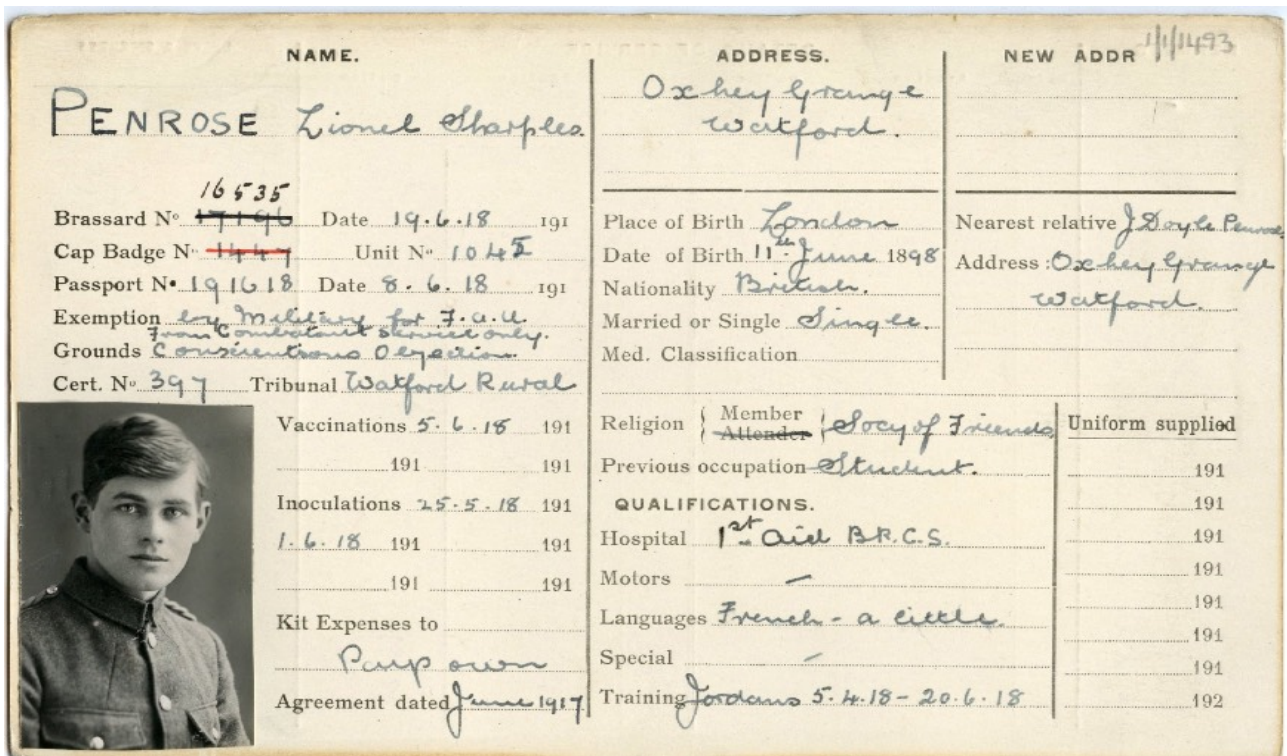 NAME.
PENROSE Lionel Sharples.
16535
Brassard No 17196 Date 19.6.18 191
Cap Badge No 1447 Unit No 1045
Passport No 191618 Date 8.6.18 191
Exemption by Military for F.A.U.
from Combatant Service only.
Grounds Conscientious Objection.
Cert. No 397 Tribunal Watford Rural
Vaccinations 5.6.18 191
191 191
Inoculations 25.5.18 191
1.6.18 191 191
191 191
Kit Expenses to
Pays own
Agreement dated June 1917
ADDRESS.
Oxhey Grange
Watford.
Place of Birth London
Date of Birth 11th June 1898
Nationality British.
Married or Single Single.
Med. Classification
Religion { Member Attender } Socy of Friends
Previous occupation Student.
QUALIFICATIONS.
Hospital 1st Aid B.R.C.S.
Motors —
Languages French - a little.
Special —
Training Jordans 5.4.18 - 20.6.18
NEW ADDR 1/1/1493
Nearest relative J Doyle Penrose
Address: Oxhey Grange
Watford.
Uniform supplied
191
191
191
191
191
191
191
192